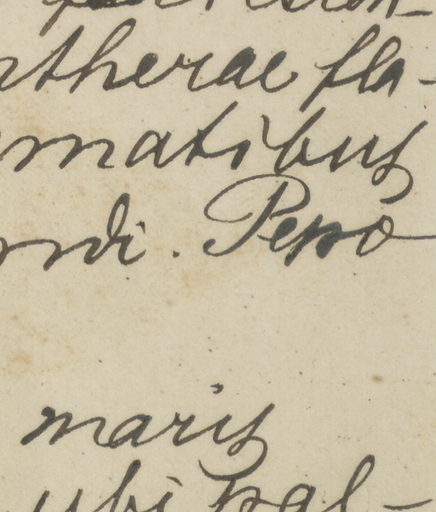 ntherae fla-
rmatibus
ndi. Pepo
maris
ubi pal-